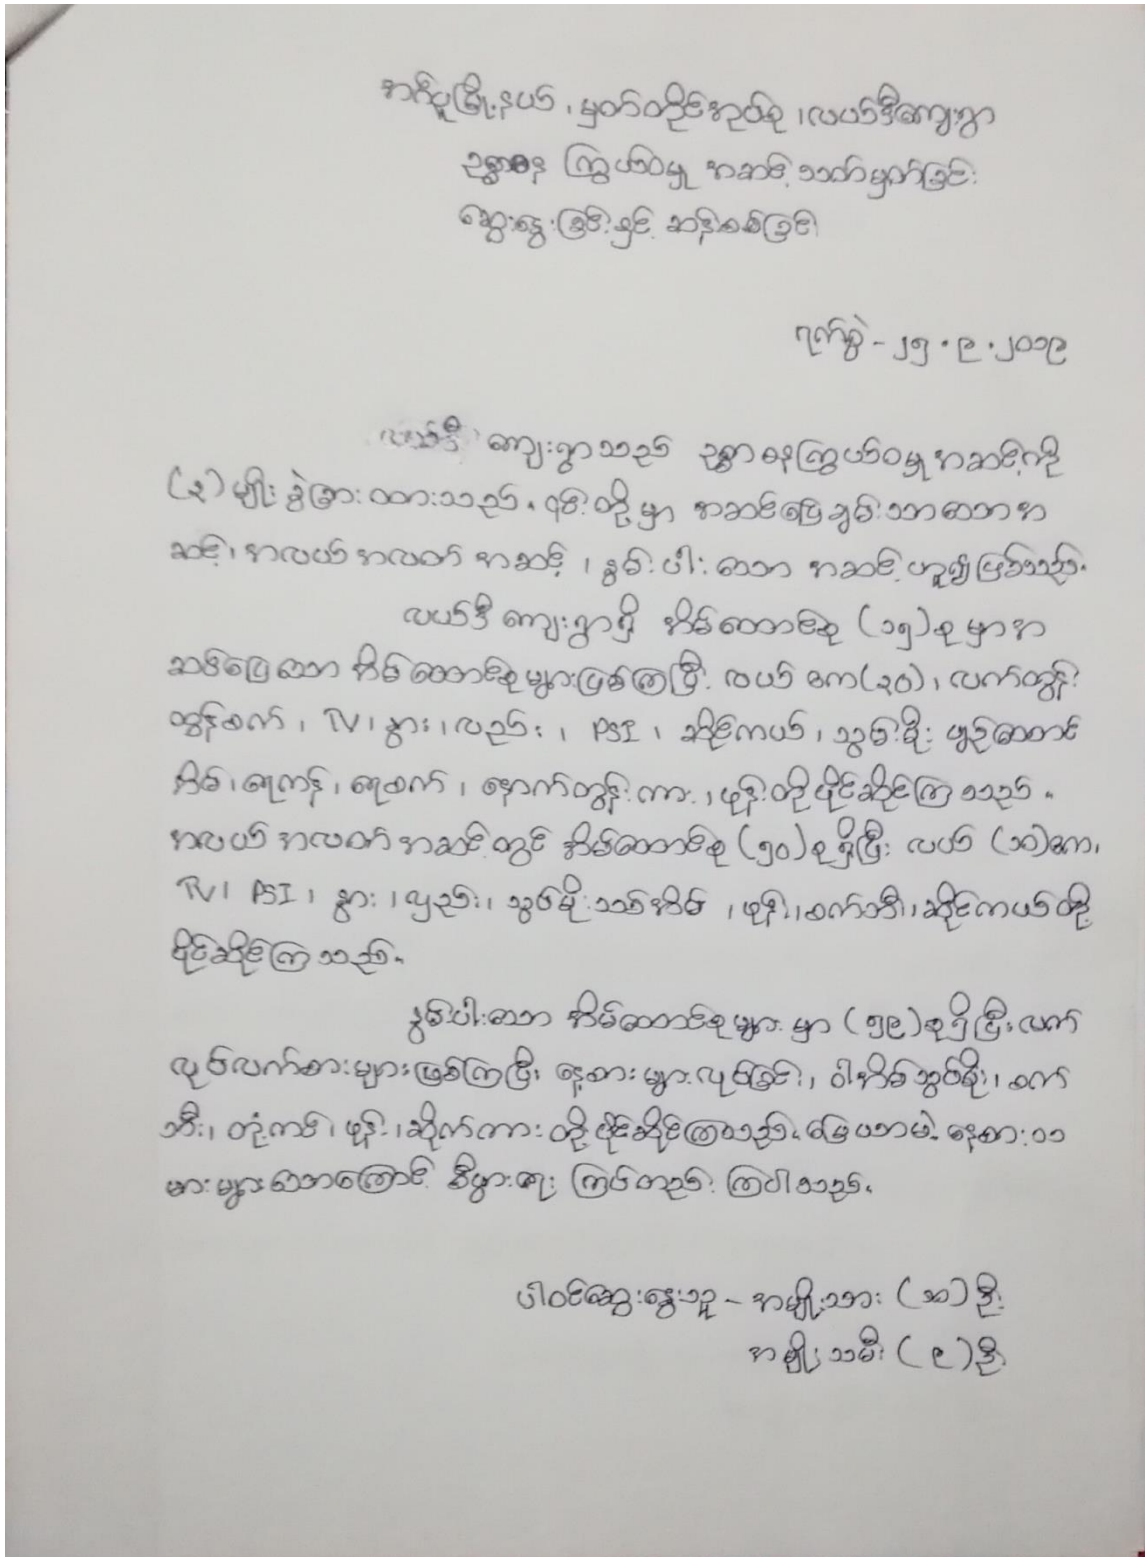 အင်္ဂပူမြို့နယ် ၊ မှတ်တိုင်အုပ်စု ၊ လယ်ဒီကျေးရွာ
ဥစ္စာဓန ကြွယ်ဝမှု အဆင့် သတ်မှတ်ခြင်း
ဆွေးနွေးခြင်းနှင့် ဆန်းစစ်ခြင်း
ရက်စွဲ - ၂၅.၉.၂၀၁၉
လယ်ဒီ ကျေးရွာသည် ဥစ္စာဓနကြွယ်ဝမှုအဆင့်ကို
(၃) မျိုး ခွဲခြား ထားသည်။ ၎င်းတို့မှာ အဆင်ပြေချမ်းသာသောအ
ဆင့်၊ အလယ်အလတ် အဆင့် ၊ နွမ်းပါးသော အဆင့် ဟူ၍ဖြစ်သည်။
လယ်ဒီ ကျေးရွာရှိ အိမ်ထောင်စု (၁၅)စု မှာအ
ဆင်ပြေသော အိမ်ထောင်စုများဖြစ်ကြပြီး လယ် ဧက(၃၀)၊ လက်တွန်း
ထွန်စက် ၊ TV ၊ နွား ၊ လှည်း ၊ PSI ၊ ဆိုင်ကယ် ၊ သွပ်မိုး ပျဉ်ထောင်
အိမ် ၊ ရေကန် ၊ ရေစက် ၊ နောက်တွန်းကား ၊ ဖုန်းတို့ပိုင်ဆိုင်ကြသည်။
အလယ်အလတ်အဆင့်တွင် အိမ်ထောင်စု (၅၀)စု ရှိပြီး လယ် (၁၀)ဧက၊
TV ၊ PSI ၊ နွား ၊ လှည်း၊ သွပ်မိုး သစ်အိမ် ၊ ဖုန်း၊ စက်ဘီး၊ ဆိုင်ကယ်တို့
ပိုင်ဆိုင်ကြသည်။
နွမ်းပါးသော အိမ်ထောင်စုများ မှာ (၅၉)စုရှိပြီး လက်
လုပ်လက်စားများဖြစ်ကြပြီး နေ့စားများလုပ်ခြင်း၊ ဝါးအိမ်သွပ်မိုး၊ စက်
ဘီး၊ တုံ့ကင် ၊ ဖုန်း ၊ ဆိုက်ကား တို့ပိုင်ဆိုင်ကြသည်။ မြေယာမဲ့ နေ့စားသ
မားများသာကြောင့် စီးပွားရေး ကြပ်တည်းကြပါသည်။
ပါဝင်ဆွေးနွေးသူ - အမျိုးသား (၁၁) ဦး
အမျိုးသမီး (၉) ဦး